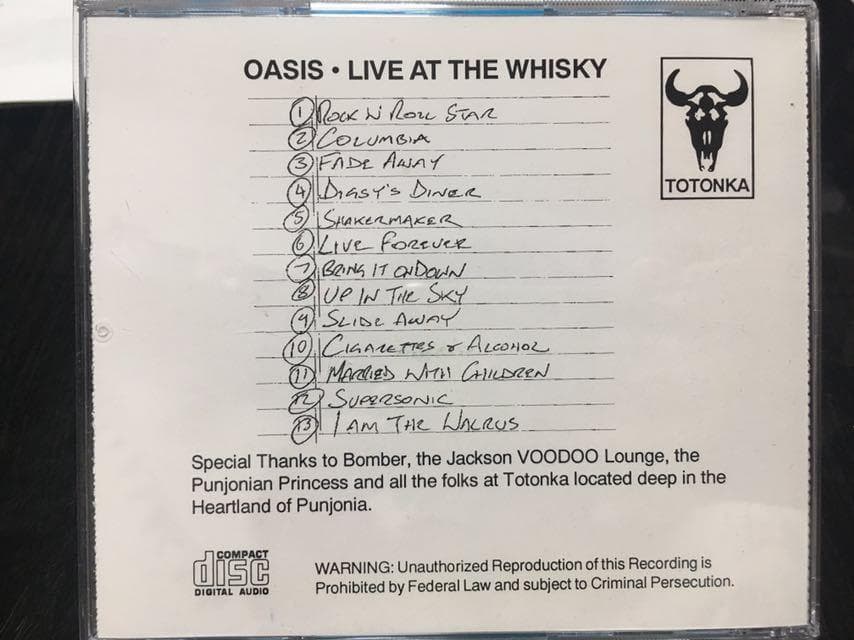 OASIS • LIVE AT THE WHISKY
1 ROCK N ROLL STAR
2 COLUMBIA
3 FADE AWAY
4 DIGSY'S DINER
5 SHAKERMAKER
6 LIVE FOREVER
7 BRING IT ON DOWN
8 UP IN THE SKY
9 SLIDE AWAY
10 CIGARETTES & ALCOHOL
11 MARRIED WITH CHILDREN
12 SUPERSONIC
13 I AM THE WALRUS
TOTONKA
Special Thanks to Bomber, the Jackson VOODOO Lounge, the
Punjonian Princess and all the folks at Totonka located deep in the
Heartland of Punjonia.
COMPACT
disc
DIGITAL AUDIO
WARNING: Unauthorized Reproduction of this Recording is
Prohibited by Federal Law and subject to Criminal Persecution.